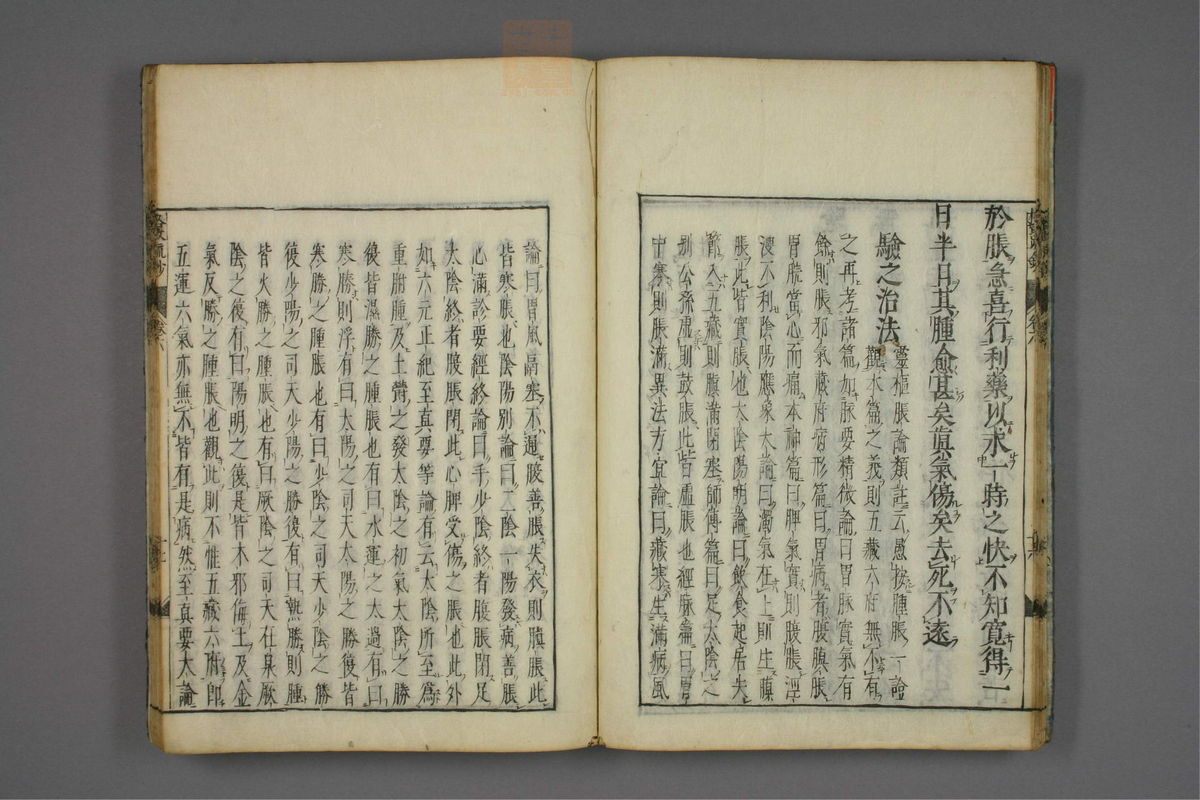 於脹急喜行利藥以求一時之快不知寛得一
日半日其腫愈甚矣眞氣傷矣去死不遠
驗之治法
靈樞脹論類註云愚按腫脹一證
觀水篇之義則五藏六府無不有
之再考諸篇如脉要精微論曰胃脉實氣有
餘則脹邪氣藏府病形篇曰胃病者腹䐜脹
胃脘當心而痛本神篇曰脾氣實則腹脹涇
溲不利陰陽應象大論曰濁氣在上則生䐜
脹此皆實脹也太陰陽明論曰飲食起居失
節入五藏則䐜滿閉塞師傳篇曰足太陰之
別公孫虛則鼓脹此皆虛脹也經脉篇曰胃
中寒則脹滿異法方宜論曰藏寒生滿病風
論曰胃風鬲塞不通腹善脹失衣則䐜脹此
皆寒脹也陰陽別論曰二陰一陽發病善脹
心滿診要經終論曰手少陰終者腹脹閉足
太陰終者腹脹閉此心脾受傷之脹也此外
如六元正紀至真要等論有云太陰所至爲
重胕腫及土鬱之發太陰之初氣太陰之勝
復皆濕勝之腫脹也有曰水運之太過有曰
寒勝則浮有曰太陽之司天太陽之勝復皆
寒勝之腫脹也有曰少陰之司天少陰之勝
復少陽之司天少陽之勝復有曰熱勝則腫
皆火勝之腫脹也有曰厥陰之司天在泉厥
陰之復有曰陽明之復是皆木邪侮土及金
氣反勝之腫脹也觀此則不惟五藏六府即
五運六氣亦無不皆有是病然至真要大論